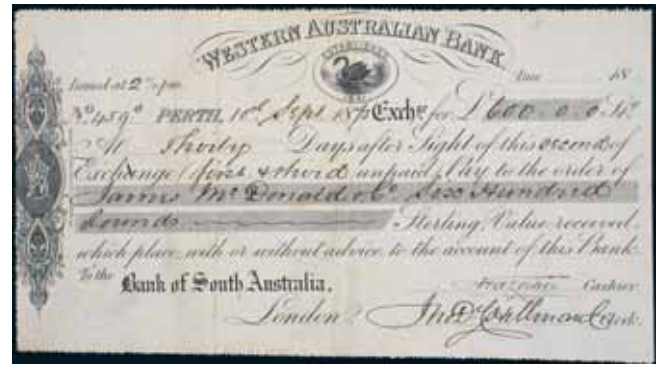 WESTERN AUSTRALIAN BANK
ESTABLISHED 1841
Issued at 2 % pm. Due 18
No 459 PERTH, 10th Sept 187 Exche for £600.0.0 Stg
At Thirty Days after Sight of this second of
Exchange (first & third unpaid) Pay to the order of
James McDonald & Co Six Hundred
Pounds Sterling, Value received,
which place, with or without advice, to the account of this Bank.
To the Bank of South Australia, Cashier
London